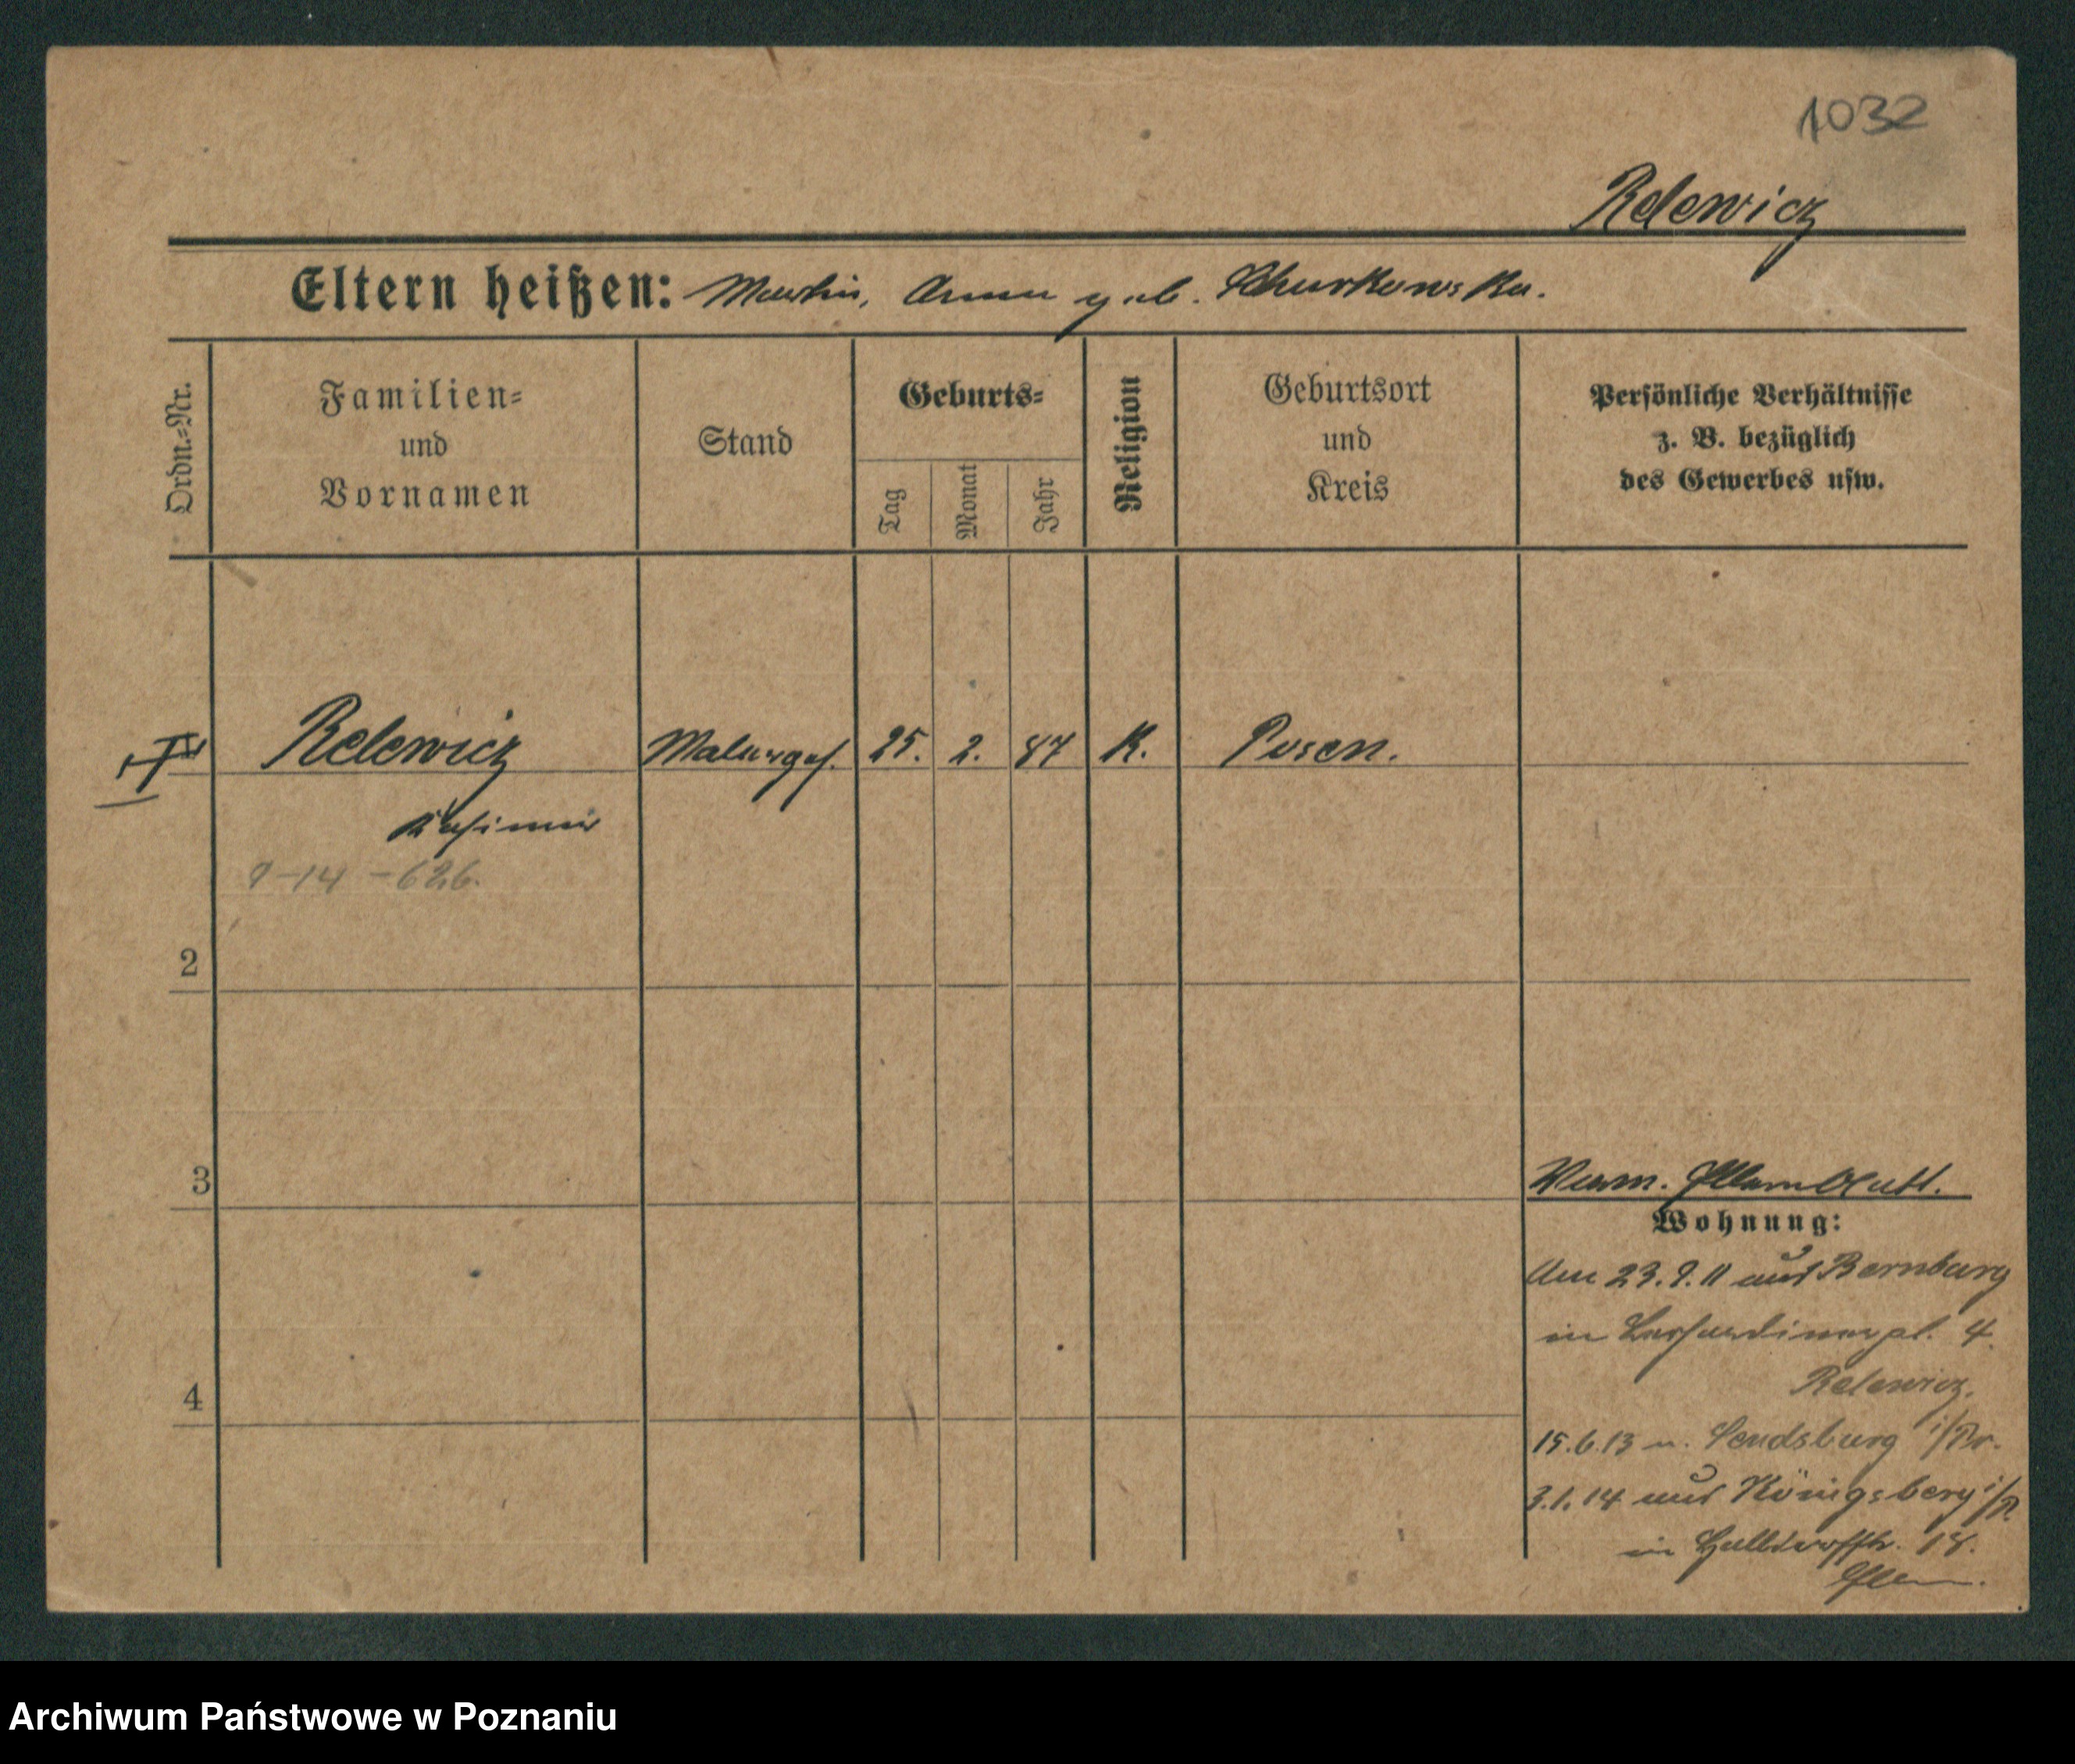 1032
Relewicz
Eltern heißen: Martin, Anna geb. Schurkowska.
Ordn.=Nr.
Familien=
und
Vornamen
Stand
Geburts=
Tag
Monat
Jahr
Religion
Geburtsort
und
Kreis
Persönliche Verhältnisse
z. B. bezüglich
des Gewerbes usw.
Relewicz Malergeh. 25. 2. 87 K. Posen.
Kasimir
9-14 - 626.
2
3
4
Verm.
Wohnung:
Am 23.9.11 aus Bernburg
in Bernhardinerpl. 4.
Relewicz.
15.6.13 n. Sensburg i/Pr.
3.1.14 aus Königsberg i/P.
in Halbdorfstr. 18.
Archiwum Państwowe w Poznaniu